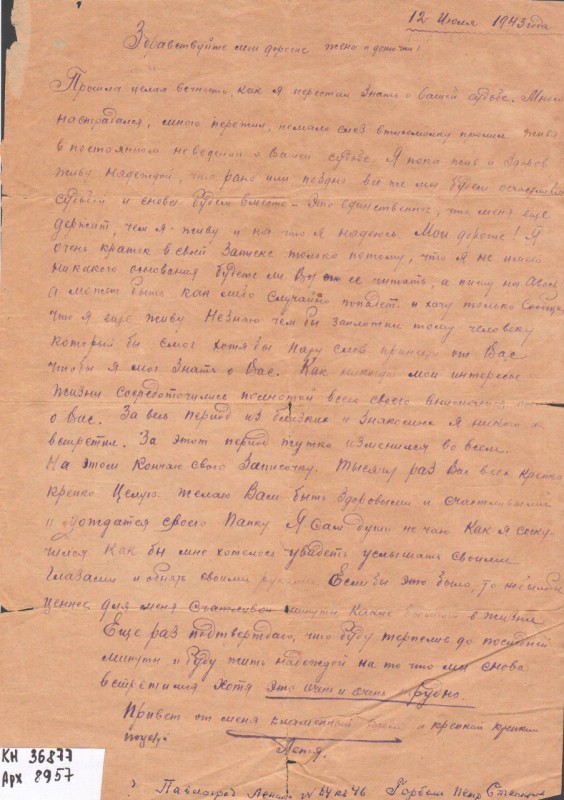 12 Июля 1943 года
Здравствуйте мои дорогие жена и дочки!
Прошла целая вечность как я перестал знать о вашей судьбе. Много
настрадался, много пережил, немало слез втихомолку пролил живя
в постоянном неведении о Вашей судьбе. Я пока жив и здоров
живу надеждой, что рано или поздно все же мы будем
судьбой и снова будем вместе – это единственное, что меня еще
держит, чем я живу и на что я надеюсь. Мои дорогие! Я
очень краток в своей записке только потому, что я не имею
никакого основания будете ли Вы ее читать, а пишу на Авось
а может быть как либо случайно попадет и хочу только сообщить
что я еще живу. Незнаю чем бы заплатил тому человеку
который бы смог хотя бы пару слов принести от Вас
чтобы я мог знать о Вас. Как никогда мои интересы
жизни сосредоточились полнотой всего своего внимания
о Вас. За весь период из близких и знакомых я никого не
встретил. За этот период жутко изменился во всем.
На этом кончаю свою записочку. Тысячу раз Вас всех крепко
крепко целую желаю Вам быть здоровыми и счастливыми
и дождатся своего Папку Я сам души не чаю Как я соску-
чился как бы мне хотелось увидеть услышать своими
глазами и обнять своими руками Если бы это было, то небыло бы
ценнее для меня счастливой минуты в жизни
Еще раз подтверждаю, что буду терпелив до последней
минуты и буду жить надеждой на то что мы снова
встретимся Хотя это очень и очень трудно.
Привет от меня и крепкий крепкий
поцелуй
Петя.
КН 36877
Арх 8957
? Павлоград Ленина № кв 46 Горбель Петр Степанович